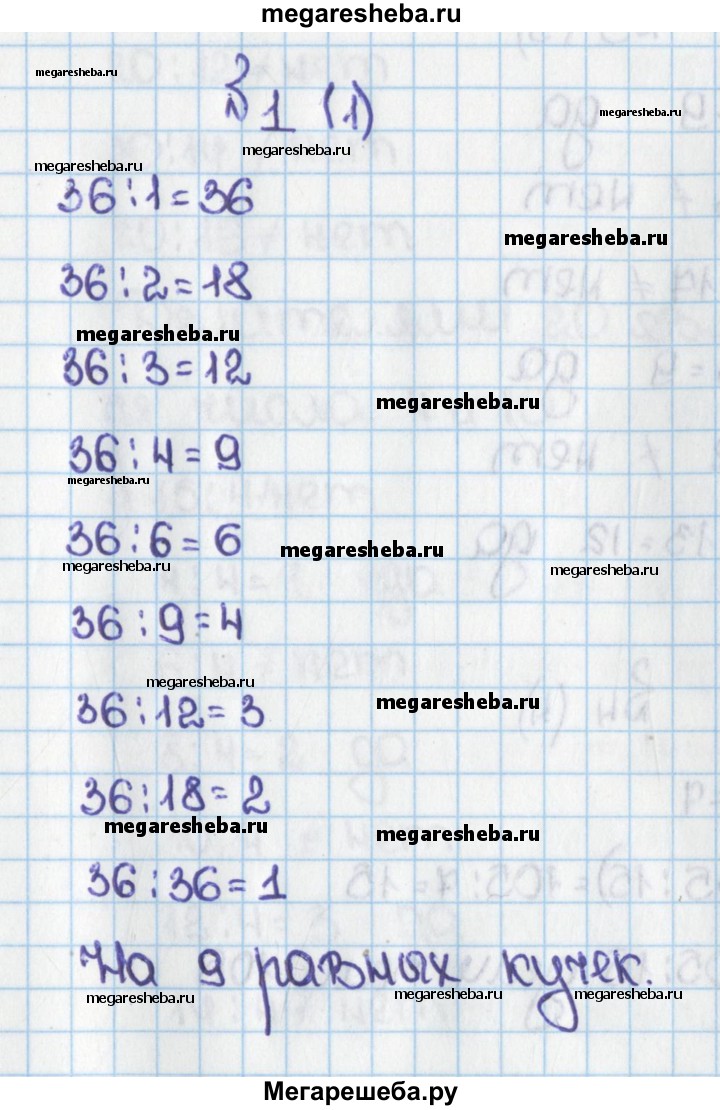 megaresheba.ru
megaresheba.ru
1 (1)
megaresheba.ru
megaresheba.ru
megaresheba.ru
36 : 1 = 36
megaresheba.ru
36 : 2 = 18
megaresheba.ru
36 : 3 = 12
megaresheba.ru
36 : 4 = 9
megaresheba.ru
36 : 6 = 6
megaresheba.ru
megaresheba.ru
megaresheba.ru
36 : 9 = 4
megaresheba.ru
36 : 12 = 3
megaresheba.ru
36 : 18 = 2
megaresheba.ru
megaresheba.ru
36 : 36 = 1
На 9 равных кучек.
megaresheba.ru
megaresheba.ru
megaresheba.ru
Мегарешеба.ру